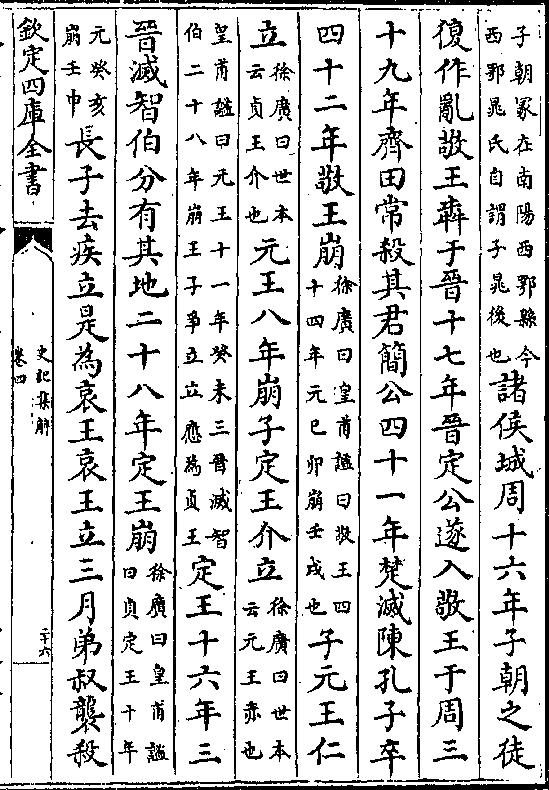 子朝冢在南陽西鄂縣今
西鄂晁氏自謂子晁後也
諸侯城周十六年子朝之徒
復作亂敬王犇于晉十七年晉定公遂入敬王于周三
十九年齊田常殺其君簡公四十一年楚滅陳孔子卒
四十二年敬王崩
徐廣曰皇甫謐曰敬王四
十四年元己卯崩壬戌也
子元王仁
立
徐廣曰世本
云貞王介也
元王八年崩子定王介立
徐廣曰世本
云元王赤也
皇甫謐曰元王十一年癸未三晉滅智
伯二十八年崩王子爭立立應為貞王
定王十六年三
晉滅智伯分有其地二十八年定王崩
徐廣曰皇甫謐
曰貞定王十年
元癸亥
崩壬申
長子去疾立是為哀王哀王立三月弟叔襲殺
欽定四庫全書
史記集解
卷四
二十六